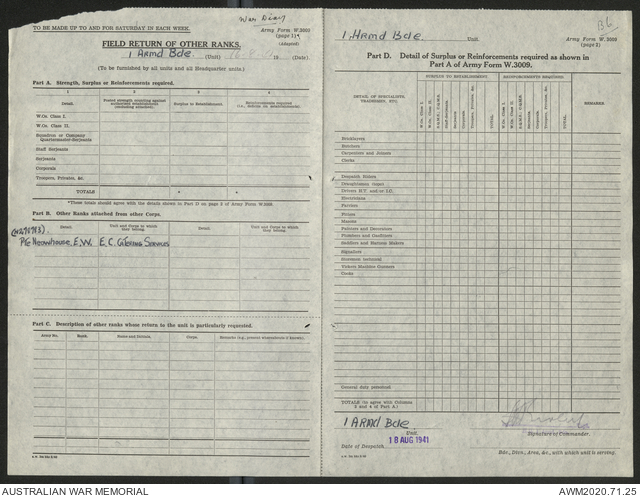 War Diary
TO BE MADE UP TO AND FOR SATURDAY IN EACH WEEK.
Army Form W.3009
(page 1)
(Adapted)
FIELD RETURN OF OTHER RANKS.
1 Armd Bde (Unit) (Date)
(To be furnished by all units and all Headquarter units.)
Part A. Strength, Surplus or Reinforcements required.
1 2 3 4
Detail. Posted strength counting against authorised establishment (excluding attached). Surplus to Establishment. Reinforcements required
W.Os. Class I.
W.Os. Class II.
Squadron or Company Quartermaster-Serjeants
Staff Serjeants
Serjeants
Corporals
Troopers, Privates, &c.
TOTALS * *
*These totals should agree with the details shown in Part D on page 2 of Army Form W.3009.
Part B. Other Ranks attached from other Corps.
Detail. Unit and Corps to which they belong. Detail. Unit and Corps to which they belong.
Pte Newnhouse. E.W. E.C. Catering Services
Part C. Description of other ranks whose return to the unit is particularly requested.
Army No. Rank. Name and Initials. Corps. Remarks (e.g., present whereabouts if known).
1 Armd Bde Unit.
B6
Army Form W.3009
(page 2)
Part D. Detail of Surplus or Reinforcements required as shown in
Part A of Army Form W.3009.
DETAIL OF SPECIALISTS TRADESMEN, ETC.
SURPLUS TO ESTABLISHMENT REINFORCEMENTS REQUIRED
W.Os. Class I. W.Os. Class II. Staff Serjeants Serjeants Corporals Troopers, Privates, &c. TOTAL W.Os. Class I. W.Os. Class II. Staff Serjeants Serjeants Corporals Troopers, Privates, &c. TOTAL REMARKS
Bricklayers
Carpenters and Joiners
Clerks
Despatch Riders
Draughtsmen (topo)
Drivers H.T. and/or I.C.
Electricians
Farriers
Fitters
Masons
Painters and Decorators
Plumbers and Gasfitters
Saddlers and Harness Makers
Signallers
Storemen technical
Vickers Machine Gunners
Cooks
General duty personnel
TOTALS (to agree with Columns
3 and 4 of Part A.)
1 ARMD Bde
Unit.
Signature of Commander.
18 AUG 1941
Date of Despatch
Bde., Divn., Area, &c., with which unit is serving.
AUSTRALIAN WAR MEMORIAL
AWM2020.71.25